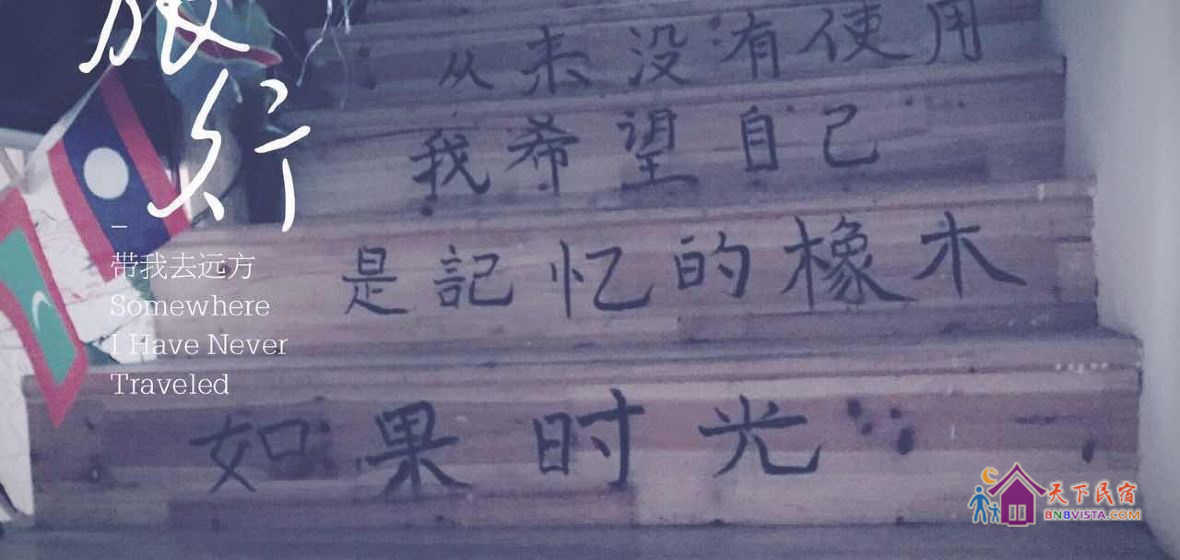 旅行
带我去远方
Somewhere
I Have Never
Traveled
从来没有使用
我希望自己
是記忆的橡木
如果时光
天下民宿
BNBVISTA.COM